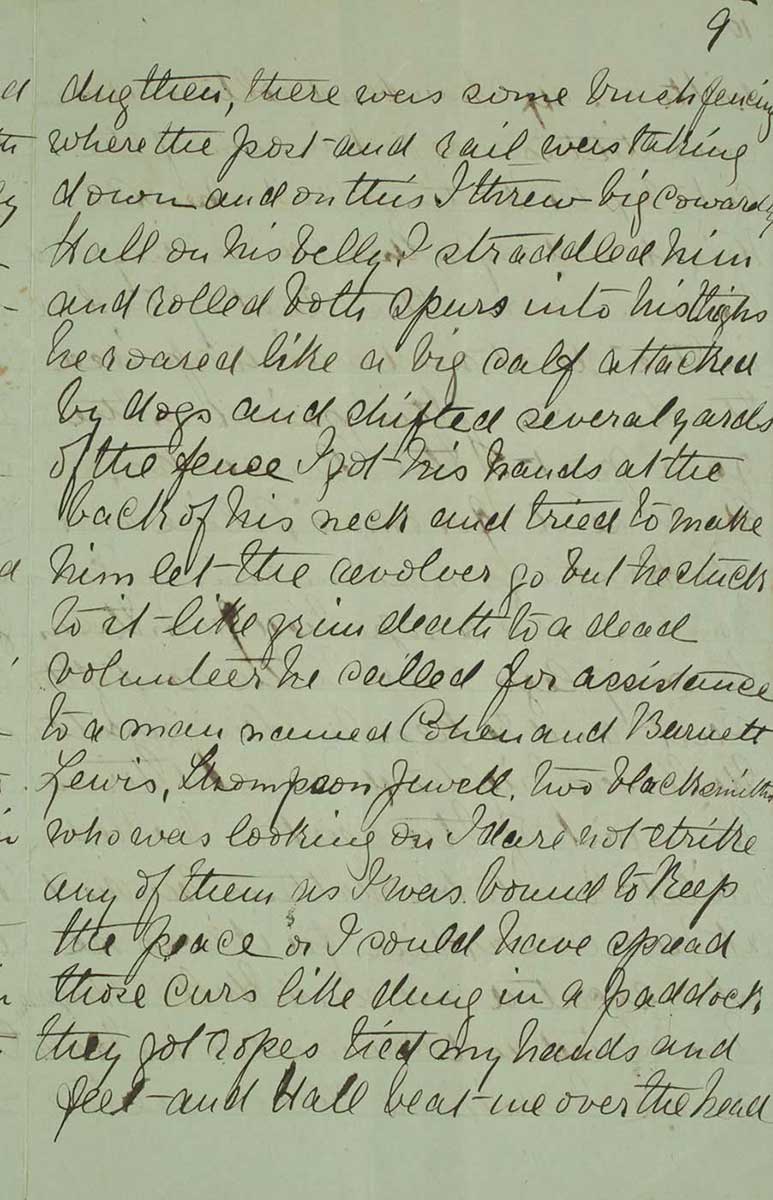 9
dug then, there was some brush fencing
where the post and rail was taking
down and on this I threw big cowardly
Hall on his belly I straddled him
and rolled both spurs into his thighs
he roared like a big calf attacked
by dogs and shifted several yards
of the fence I got his hands at the
back of his neck and tried to make
him let the revolver go but he stuck
to it like grim death to a dead
volunteer he called for assistance
to a man named Cohen and Barnett
Lewis, Thompson Jewell, two blacksmiths
who was looking on I dare not strike
any of them as I was bound to keep
the peace or I could have spread
those curs like dung in a paddock
they got ropes tied my hands and
feet and Hall beat me over the head